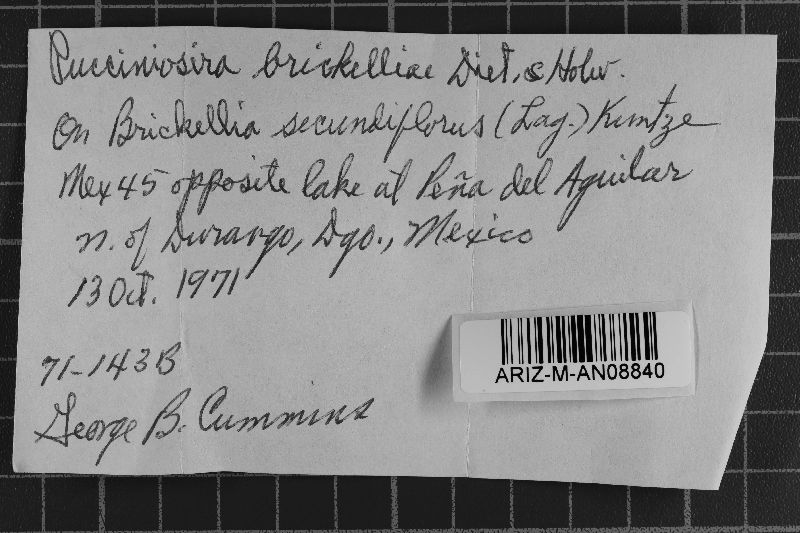 Pucciniosira brickelliae Diet. & Holw.
On Brickellia secundiflorus (Lag.) Kuntze
Mex 45 opposite lake at Peña del Aguilar
n. of Durango, Dgo., Mexico
13 Oct. 1971
71-143B
George B. Cummins
ARIZ-M-AN08840